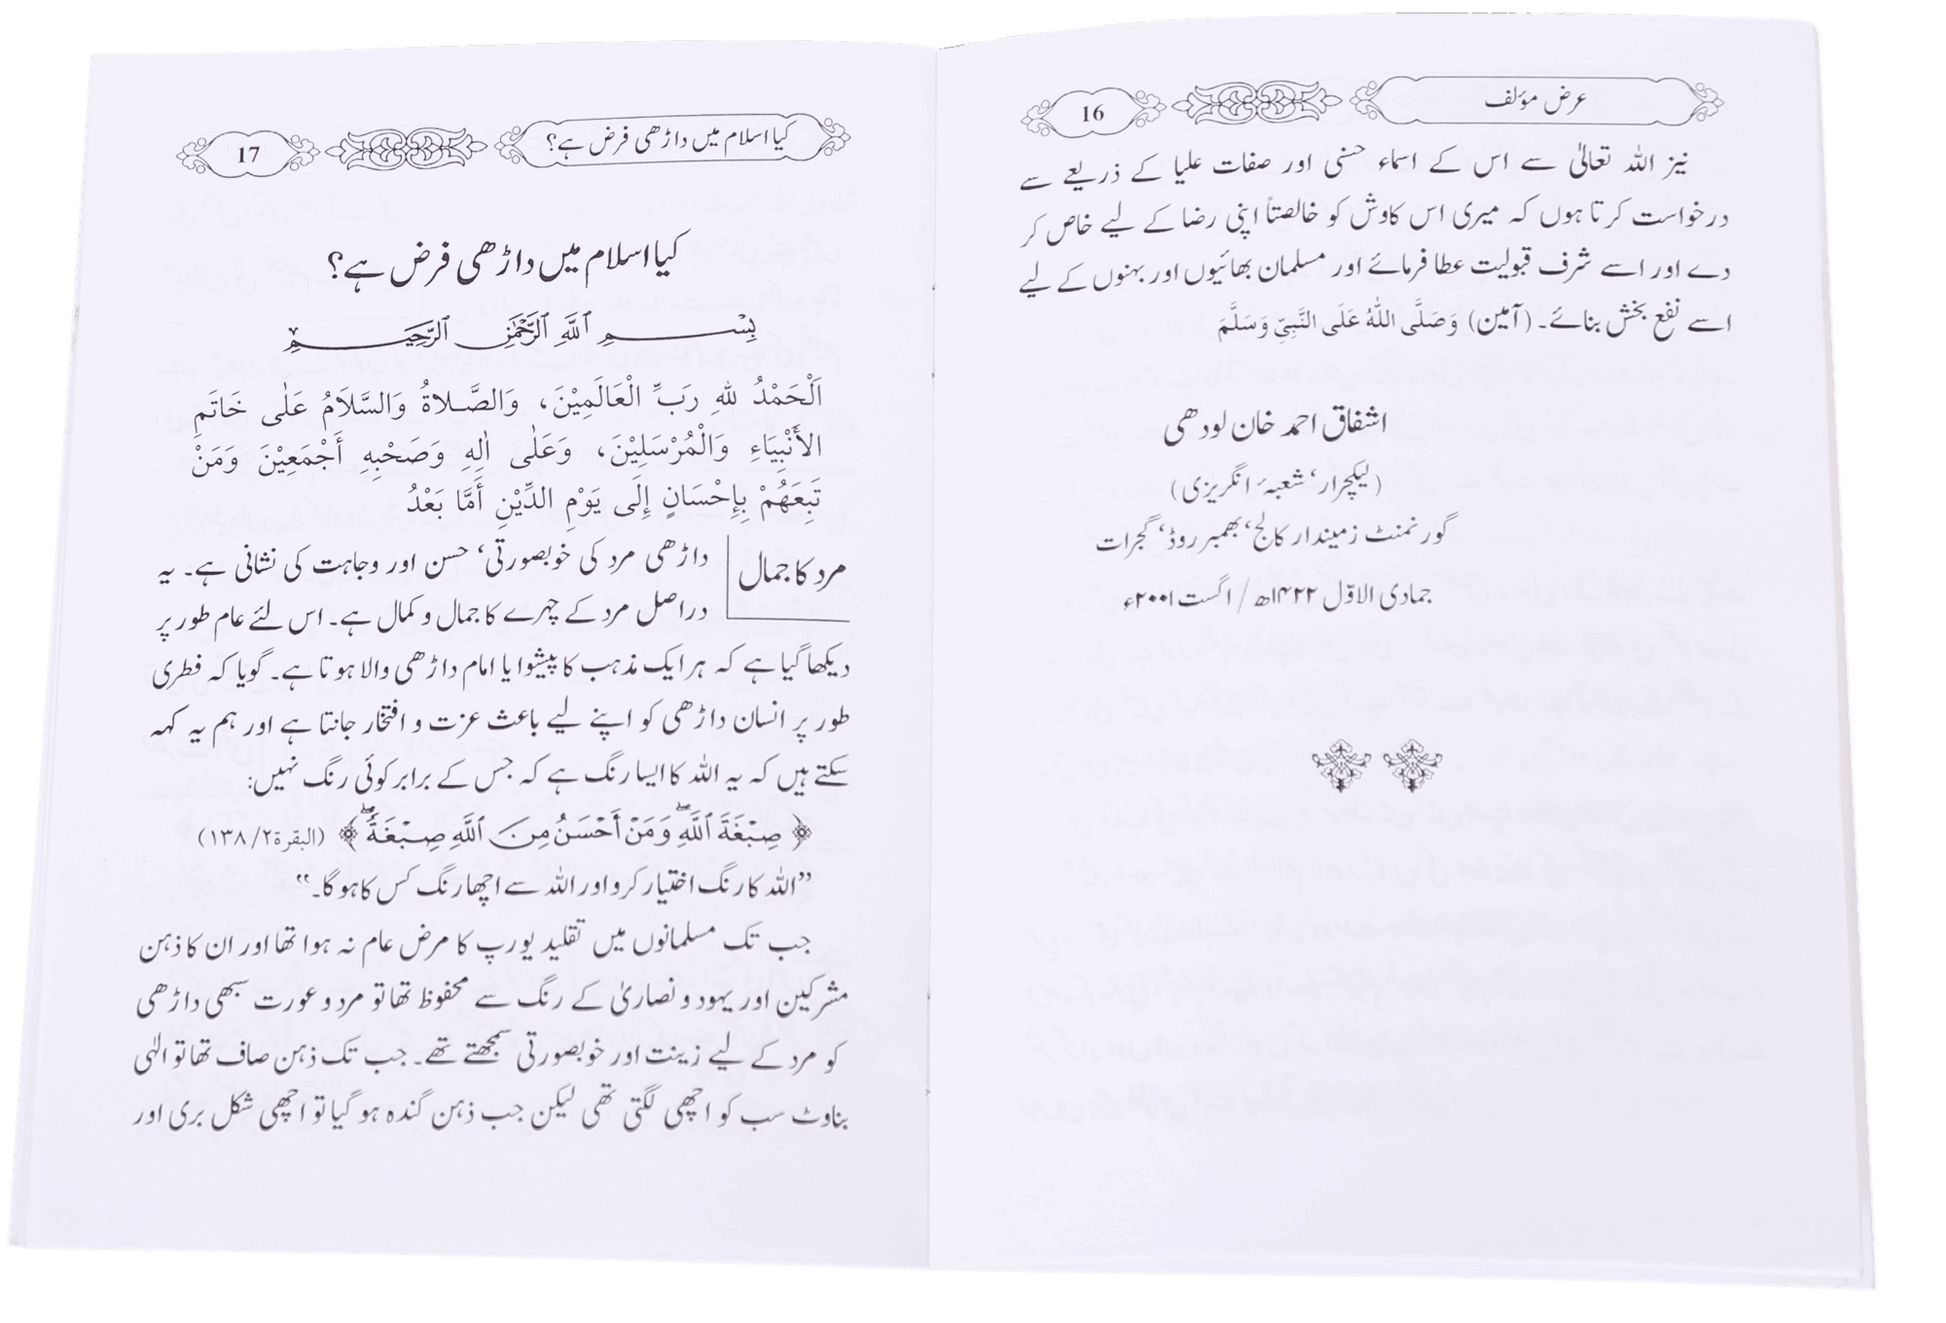 عرض مؤلف 16
نیز اللہ تعالیٰ سے اس کے اسماء حسنی اور صفات علیا کے ذریعے سے
درخواست کرتا ہوں کہ میری اس کاوش کو خالصتاً اپنی رضا کے لیے خاص کر
دے اور اسے شرف قبولیت عطا فرمائے اور مسلمان بھائیوں اور بہنوں کے لیے
اسے نفع بخش بنائے۔ (آمین) وَصَلَّى اللّٰهُ عَلَى النَّبِيِّ وَسَلَّمَ
اشفاق احمد خان لودھی
(لیکچرار، شعبہٴ انگریزی)
گورنمنٹ زمیندار کالج، بھمبر روڈ، گجرات
جمادی الاوّل ۱۴۲۲ھ / اگست ۲۰۰۱ء
کیا اسلام میں داڑھی فرض ہے؟ 17
کیا اسلام میں داڑھی فرض ہے؟
بِسْمِ ٱللَّهِ ٱلرَّحْمَٰنِ ٱلرَّحِيمِ
اَلْحَمْدُ لِلّٰهِ رَبِّ الْعَالَمِيْنَ، وَالصَّلَاةُ وَالسَّلَامُ عَلٰى خَاتَمِ
الأَنْبِيَاءِ وَالْمُرْسَلِيْنَ، وَعَلٰى اٰلِهِ وَصَحْبِهِ أَجْمَعِيْنَ وَمَنْ
تَبِعَهُمْ بِإِحْسَانٍ إِلَى يَوْمِ الدِّيْنِ أَمَّا بَعْدُ
مرد کا جمال داڑھی مرد کی خوبصورتی، حسن اور وجاہت کی نشانی ہے۔ یہ
دراصل مرد کے چہرے کا جمال و کمال ہے۔ اس لئے عام طور پر
دیکھا گیا ہے کہ ہر ایک مذہب کا پیشوا یا امام داڑھی والا ہوتا ہے۔ گویا کہ فطری
طور پر انسان داڑھی کو اپنے لیے باعث عزت و افتخار جانتا ہے اور ہم یہ کہہ
سکتے ہیں کہ یہ اللہ کا ایسا رنگ ہے کہ جس کے برابر کوئی رنگ نہیں:
﴿ صِبْغَةَ ٱللَّهِ ۖ وَمَنْ أَحْسَنُ مِنَ ٱللَّهِ صِبْغَةً ۖ ﴾ (البقرة ۲/ ۱۳۸)
”اللہ کا رنگ اختیار کرو اور اللہ سے اچھا رنگ کس کا ہو گا۔“
جب تک مسلمانوں میں تقلید یورپ کا مرض عام نہ ہوا تھا اور ان کا ذہن
مشرکین اور یہود و نصاریٰ کے رنگ سے محفوظ تھا تو مرد و عورت سبھی داڑھی
کو مرد کے لیے زینت اور خوبصورتی سمجھتے تھے۔ جب تک ذہن صاف تھا تو الٰہی
بناوٹ سب کو اچھی لگتی تھی لیکن جب ذہن گندہ ہو گیا تو اچھی شکل بری اور